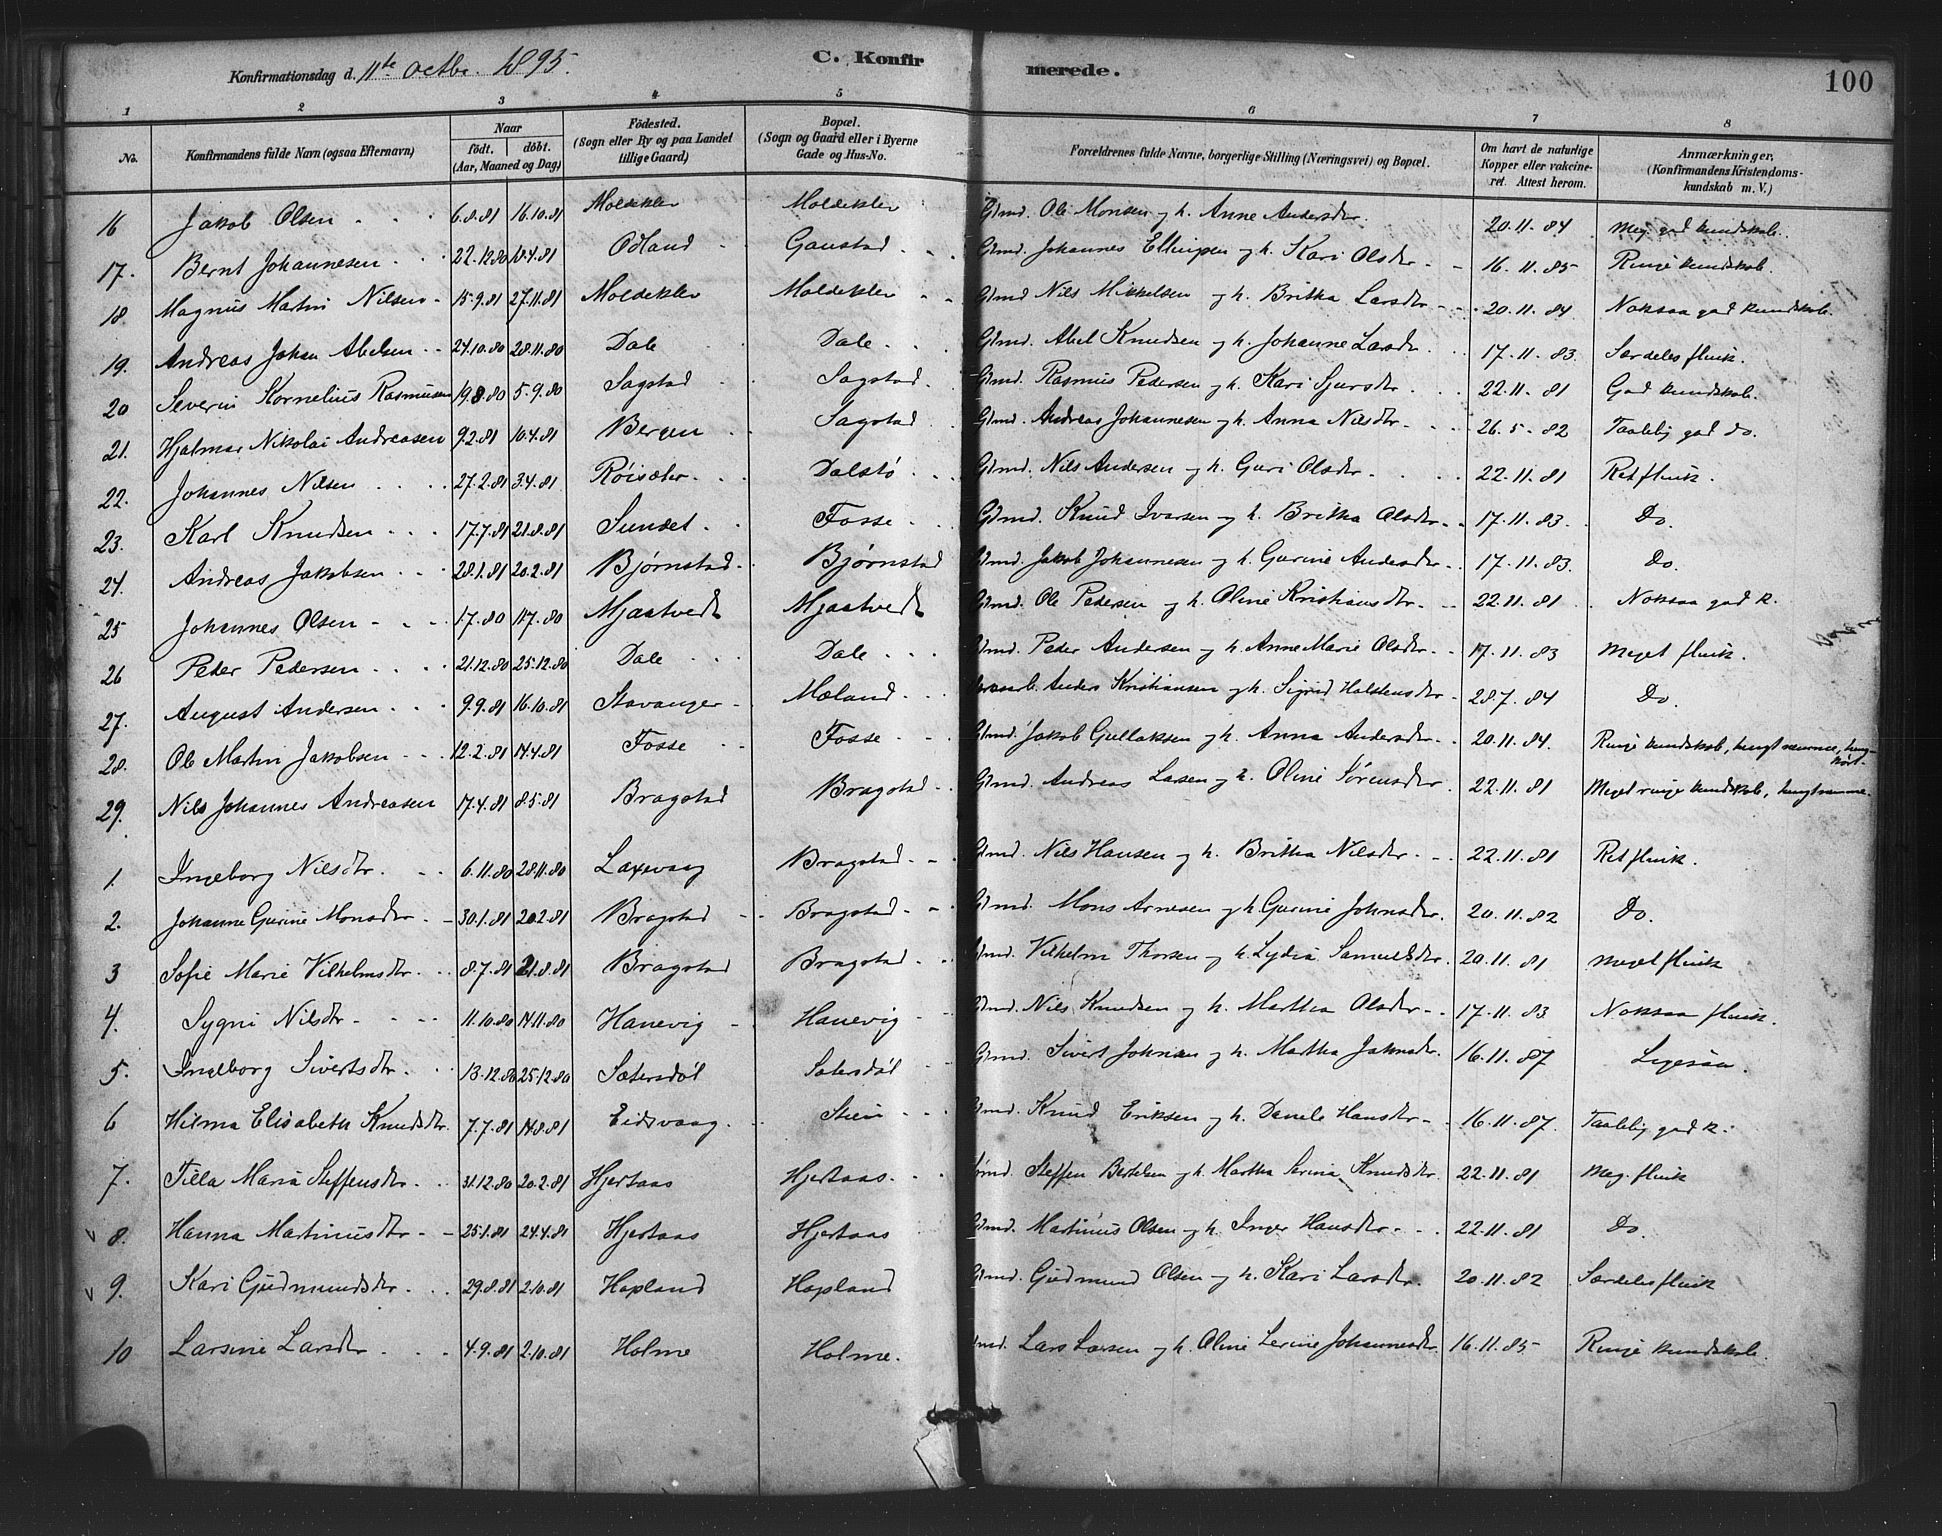 Konfirmationsdag d. 11te octbr. 1895. C. Konfirmerede. 100
1 2 3 4 5 6 7 8
No. Konfirmandens fulde Navn (ogsaa Efternavn) Naar födt. döbt. (Aar, Maaned og Dag) Födested. (Sogn eller By og paa Landet tillige Gaard) Bopæl. (Sogn og Gaard eller i Byerne Gade og Hus-No. Forældrenes fulde Navne, borgerlige Stilling (Næringsvei) og Bopæl. Om havt de naturlige Kopper eller vakcineret. Attest herom. Anmærkninger. (Konfirmandens Kristendomskundskab m. V.)
16 Jakob Olsen 6.8.81 16.10.81 Moldeklev Moldeklev Gdmd. Ole Monsen og h. Anne Andersdtr. 20.11.84 Meg. god kundskab.
17. Bernt Johannesen 22.12.80 18.4.81 Odland Gaustad Gdmd. Johannes Ellingsen og h. Kari Olsdtr 16.11.85 Ringe kundskab.
18. Magnus Martin Nilsen 15.9.81 27.11.81 Moldeklev Moldeklev Gdmd Nils Mikkelsen og h. Britha Larsdtr 20.11.84 Noksaa god kundskab.
19. Andreas Johan Abelsen 24.10.80 28.11.80 Dale Dale Gdmd. Abel Knudsen og h. Johanne Larsdtr. 17.11.83. Særdeles flink.
20 Severin Kornelius Rasmusen 19.8.80 5.9.80 Sagstad Sagstad. Gdmd. Rasmus Pedersen og h. Kari Sjursdtr 22.11.81 God kundskab.
21. Hjalmar Nikolai Andreasen 9.2.81 10.4.81 Bergen Sagstad Gdmd. Andreas Johannesen og h. Anna Nilsdtr. 26.5.82 Taalelig god do.
22. Johannes Nilsen 27.2.81 3.4.81 Röisæter Dalstø Gdmd. Nils Andersen og h. Guri Olsdtr 22.11.81 Ret flink.
23. Karl Knudsen 17.7.81 21.8.81 Sundet Fosse Gdmd. Knud Ivarsen og h. Britha Olsdtr 17.11.83. Do.
24. Andreas Jakobsen 28.1.81 20.2.81 Bjørnstad Bjørnstad Gdmd. Jakob Johannesen og h. Gurine Andersdtr 17.11.83. Do.
25 Johannes Olsen 1.7.80 11.7.80 Mjaatvedt Mjaatvedt Gdmd. Ole Pedersen og h. Oline Kristiansdtr. 22.11.81 Noksaa god k.
26 Peder Pedersen 21.12.80 25.12.80 Dale Dale Gdmd. Peder Andersen og h. Anne Marie Olsdtr 17.11.83 Meget flink.
27. August Andersen 9.9.81 16.10.81 Stavanger Mæland Anders Kristiansen og h. Sigrid Halstensdtr 28.7.84 Do.
28. Ole Martin Jakobsen 12.2.81 14.4.81 Fosse Fosse Gdmd. Jakob Gullaksen og h. Anna Andersdtr 20.11.84. Ringe kundskab, tungt nemme,
29. Nils Johannes Andreasen 17.4.81 8.5.81 Bragstad Bragstad Gdmd. Andreas Larsen og h. Oline Sørensdtr. 22.11.81 Meget ringe kundskab, tungt nemme.
1. Ingeborg Nilsdtr. 6.11.80 28.11.80 Laxevaag Bragstad Gdmd. Nils Hansen og h. Britha Nilsdtr. 22.11.81 Ret flink.
2. Johanne Gurine Monsdtr 30.1.81 20.2.81 Bragstad Bragstad Gdmd. Mons Arnesen og h. Gurine Johnsdtr. 20.11.82 Do.
3 Sofie Marie Vilhelmsdtr. 8.7.81 21.8.81 Bragstad Bragstad Gdmd. Vilhelm Thorsen og h. Lydia Samuelsdtr. 20.11.81 Meget flink
4. Sygni Nilsdtr 11.10.80 14.11.80 Hanevig Hanevig Gdmd. Nils Knudsen og h. Martha Olsdtr 17.11.83 Noksaa flink.
5. Ingeborg Sivertsdtr. 13.12.80 25.12.80 Sætersdøl Sætersdøl Gdmd. Sivert Johnsen og h. Martha Johnsdtr. 16.11.87 Ligesaa.
6 Hilma Elisabeth Knudsdtr. 7.7.81 14.8.81 Eidsvaag Stien Gdmd. Knud Eriksen og h. Danele Hansdtr 16.11.87. Taalelig god k.
7. Tilla Maria Steffensdtr. 31.12.80 20.2.81 Hjertaas Hjertaas Steffen Bertelsen og h. Martha Serina Knudsdtr. 22.11.81 Meg. flink
8. Hanna Martinusdtr 25.1.81 24.4.81 Hjertaas Hjertaas Gdmd. Martinus Olsen og h. Inger Hansdtr 22.11.81 Do.
9. Kari Gudmundsdtr. 29.8.81 2.10.81 Hopland Hopland Gdmd. Gudmund Olsen og h. Kari Larsdtr. 20.11.82 Særdeles flink
10 Larsine Larsdtr 4.9.81 2.10.81 Holme Holme. Gdmd. Lars Larsen og h. Oline Serine Johannesdtr. 16.11.85 Ringe kundskab.